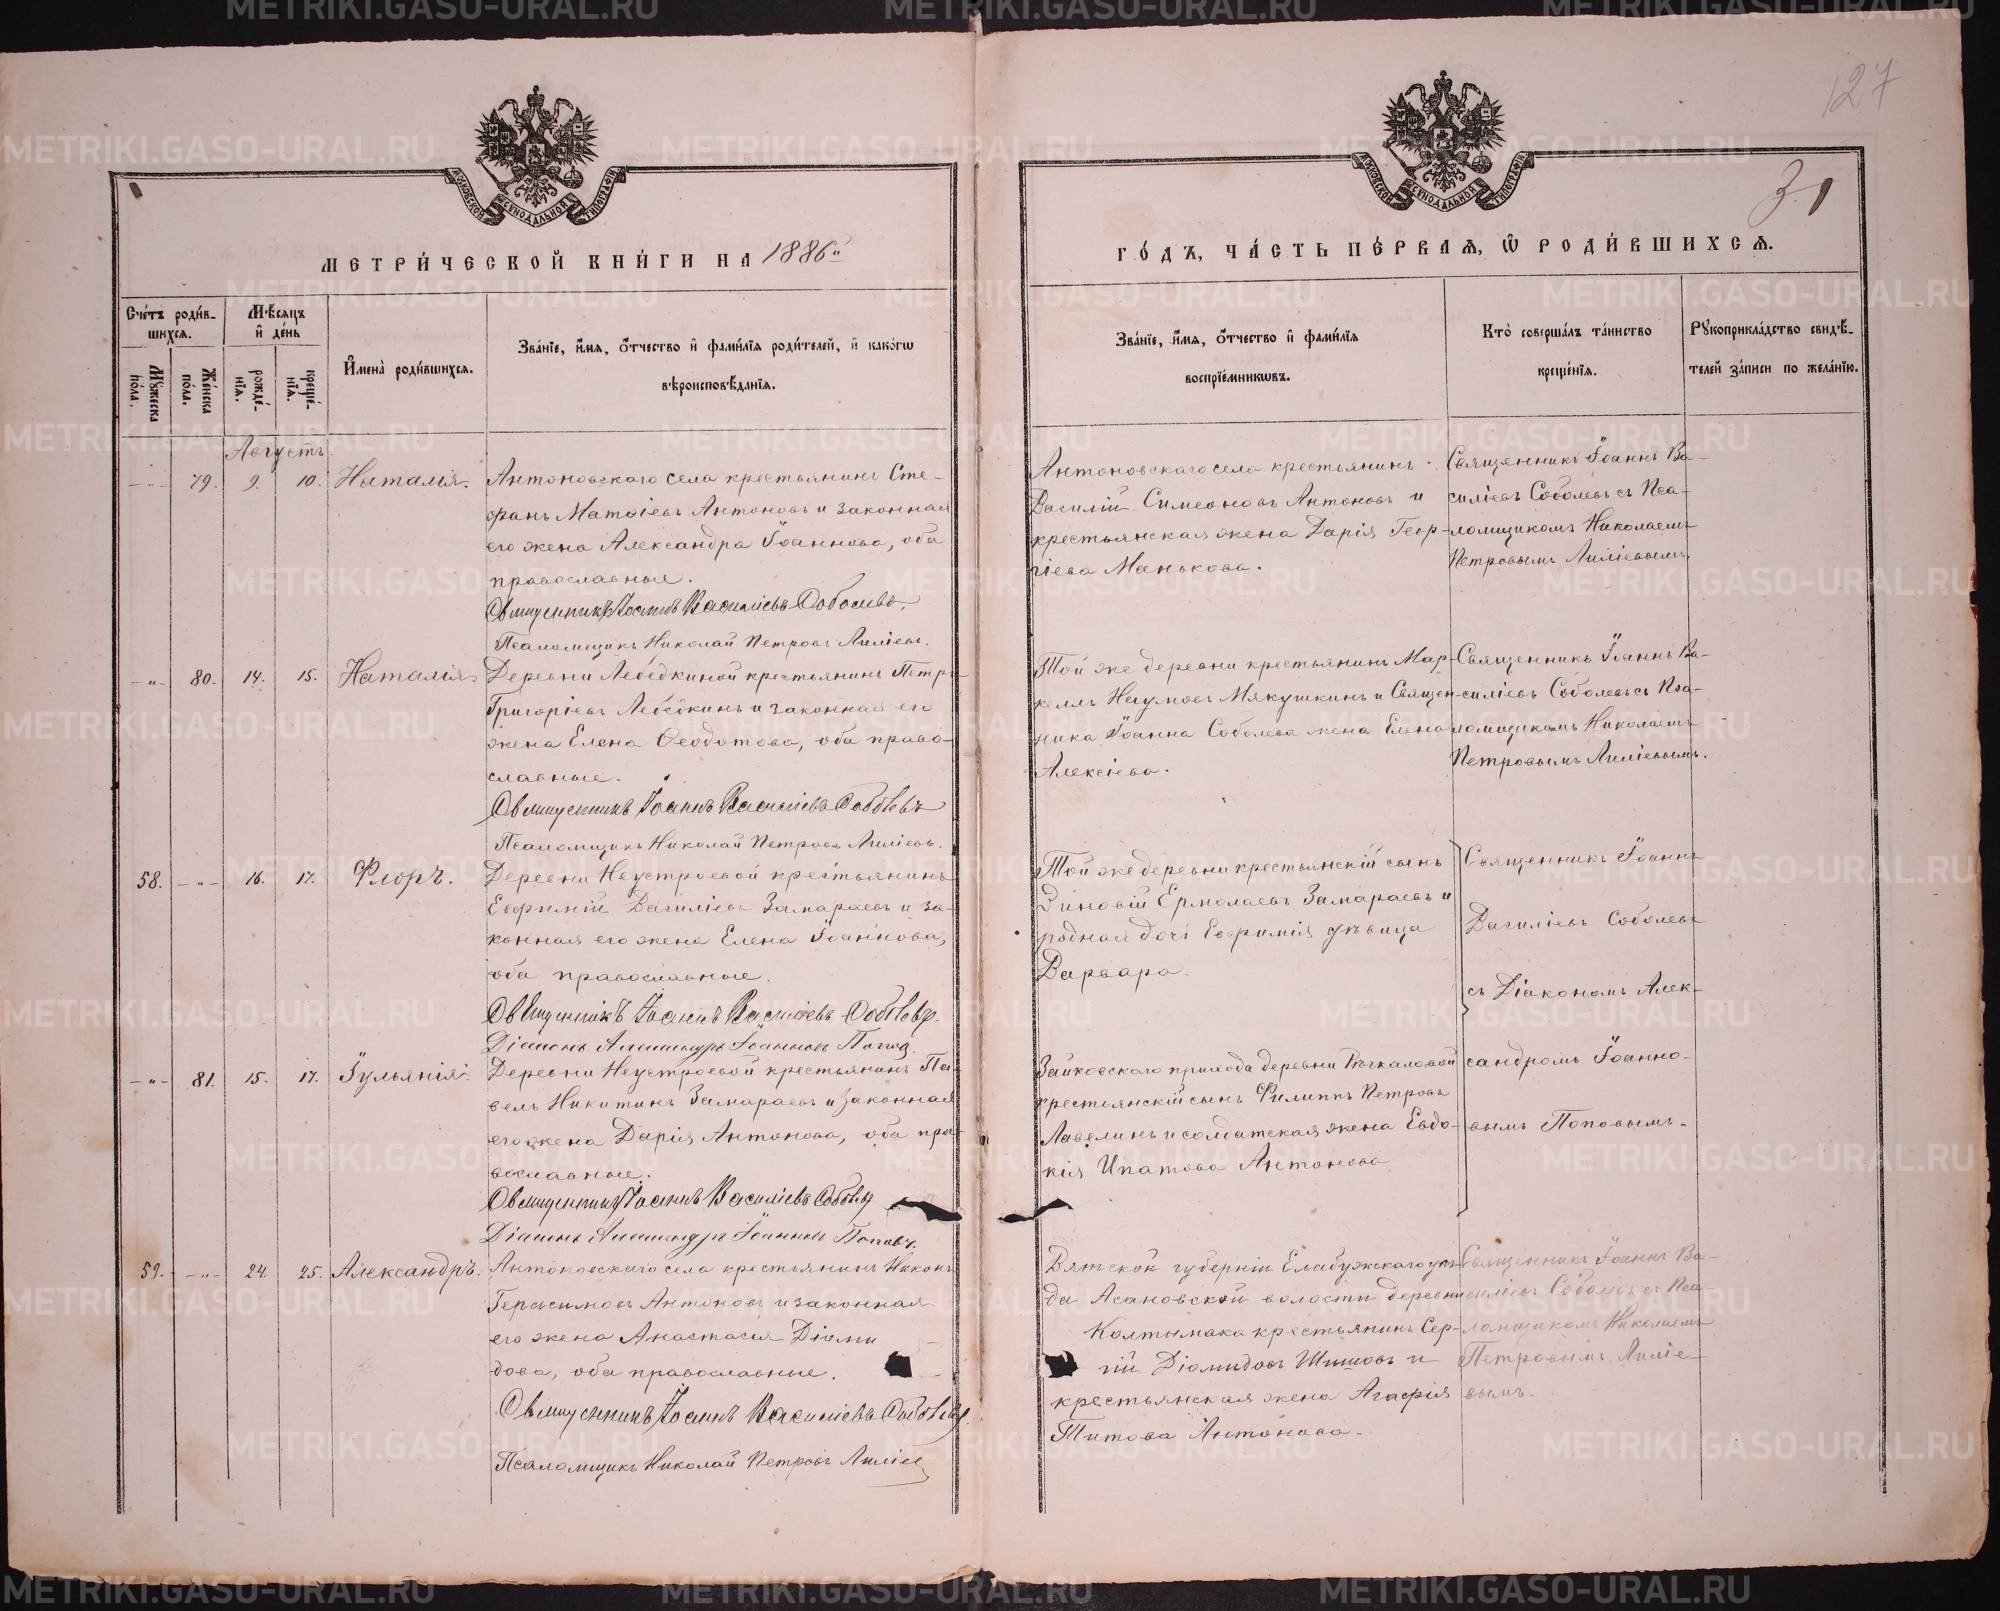 127
3.
МОСКОВСКОЙ СѴНОДАЛЬНОЙ ТИПОГРАФІИ
МОСКОВСКОЙ СѴНОДАЛЬНОЙ ТИПОГРАФІИ
МЕТРИ́ЧЕСКОЙ КНИ́ГИ НА 1886й
ГО́ДЪ, ЧА́СТЬ ПЕ́РВАЯ, Ѡ РОДИ́ВШИХСЯ.
Счетъ роди́в-
шихся.
Мѣсяцъ
и́ де́нь
Мꙋжеска
по́ла.
Же́нска
по́ла.
рожде́-
нія.
креще́-
нія.
И҆мена̀ роди́вшихся.
Зва́ніе, и҆́мя, ѻ҆́тчество и҆ фами́лія роди́телей, и҆ како́гѡ
вѣроисповѣ́данія.
Зва́ніе, и҆́мя, ѻ҆́тчество и҆ фами́лія
воспріе́мникѡвъ.
Кто̀ соверша́лъ та́инство
креще́нія.
Рꙋкоприкла́дство свидѣ́-
телей за́писи по жела́нію.
Августъ
-"- 79. 9. 10. Наталія.
Антоновскаго села крестьянинъ Сте-
фанъ Матѳіевъ Антоновъ и законная
его жена Александра Іоаннова, оба
православные.
Священникъ Іоаннъ Василіевъ Соболевъ.
Псаломщикъ Николай Петровъ Лиліевъ.
Антоновскаго села крестьянинъ
Василій Симеоновъ Антоновъ и
крестьянская жена Дарія Геор-
гіева Манькова.
Священникъ Іоаннъ Ва-
силіевъ Соболевъ съ Пса-
ломщикомъ Николаемъ
Петровымъ Лиліевымъ.
-"- 80. 14. 15. Наталія.
Деревни Лебедкиной крестьянинъ Петръ
Григоріевъ Лебедкинъ и законная его
жена Елена Ѳеодотова, оба право-
славные.
Священникъ Іоаннъ Василіевъ Соболевъ
Псаломщикъ Николай Петровъ Лиліевъ.
Той же деревни крестьянинъ Мар-
келлъ Наумовъ Мякушкинъ и Священ-
ника Іоанна Соболева жена Елена
Алексіева.
Священникъ Іоаннъ Ва-
силіевъ Соболевъ съ Пса-
ломщикомъ Николаемъ
Петровымъ Лиліевымъ.
58. -"- 16. 17. Флоръ.
Деревни Неустроевой крестьянинъ
Евфимій Василіевъ Замараевъ и за-
конная его жена Елена Іоаннова,
оба православные.
Священникъ Іоаннъ Василіевъ Соболевъ.
Діаконъ Александръ Іоанновъ Поповъ.
Той же деревни крестьянскій сынъ
Зиновій Ермолаевъ Замараевъ и
родная дочь Евфимія дѣвица
Варвара.
Священникъ Іоаннъ
Василіевъ Соболевъ
съ Діакономъ Алек-
сандромъ Іоанно-
вымъ Поповымъ.
-"- 81. 15. 17. Іуліанія.
Деревни Неустроевой крестьянинъ Па-
велъ Никитинъ Замараевъ и законная
его жена Дарія Антонова, оба пра-
вославные.
Священникъ Іоаннъ Василіевъ Соболевъ
Діаконъ Александръ Іоанновъ Поповъ.
Зайковскаго прихода деревни Рѣчкаловой
крестьянскій сынъ Филиппъ Петровъ
Лавелинъ и солдатская жена Евдо-
кія Ипатова Антонова.
59. -"- 24. 25. Александръ.
Антоновскаго села крестьянинъ Никонъ
Герасимовъ Антоновъ и законная
его жена Анастасія Діоми
дова, оба православные.
Священникъ Іоаннъ Василіевъ Соболевъ.
Псаломщикъ Николай Петровъ Лиліевъ
Вятской губерніи Елабужскаго уѣз-
да Асановской волости деревни
Колтымака крестьянинъ Сер-
гій Діомидовъ Шишовъ и
крестьянская жена Агафія
Титова Антонова.
Священникъ Іоаннъ Ва-
силіевъ Соболевъ съ Пса-
ломщикомъ Николаемъ
Петровымъ Лиліе-
вымъ.
METRIKI.GASO-URAL.RU